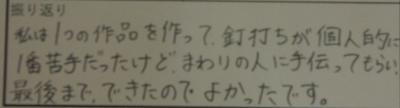 振り返り
私は1つの作品を作って、釘打ちが個人的に
1番苦手だったけど、まわりの人に手伝ってもらい、
最後まで、できたので よかったです。